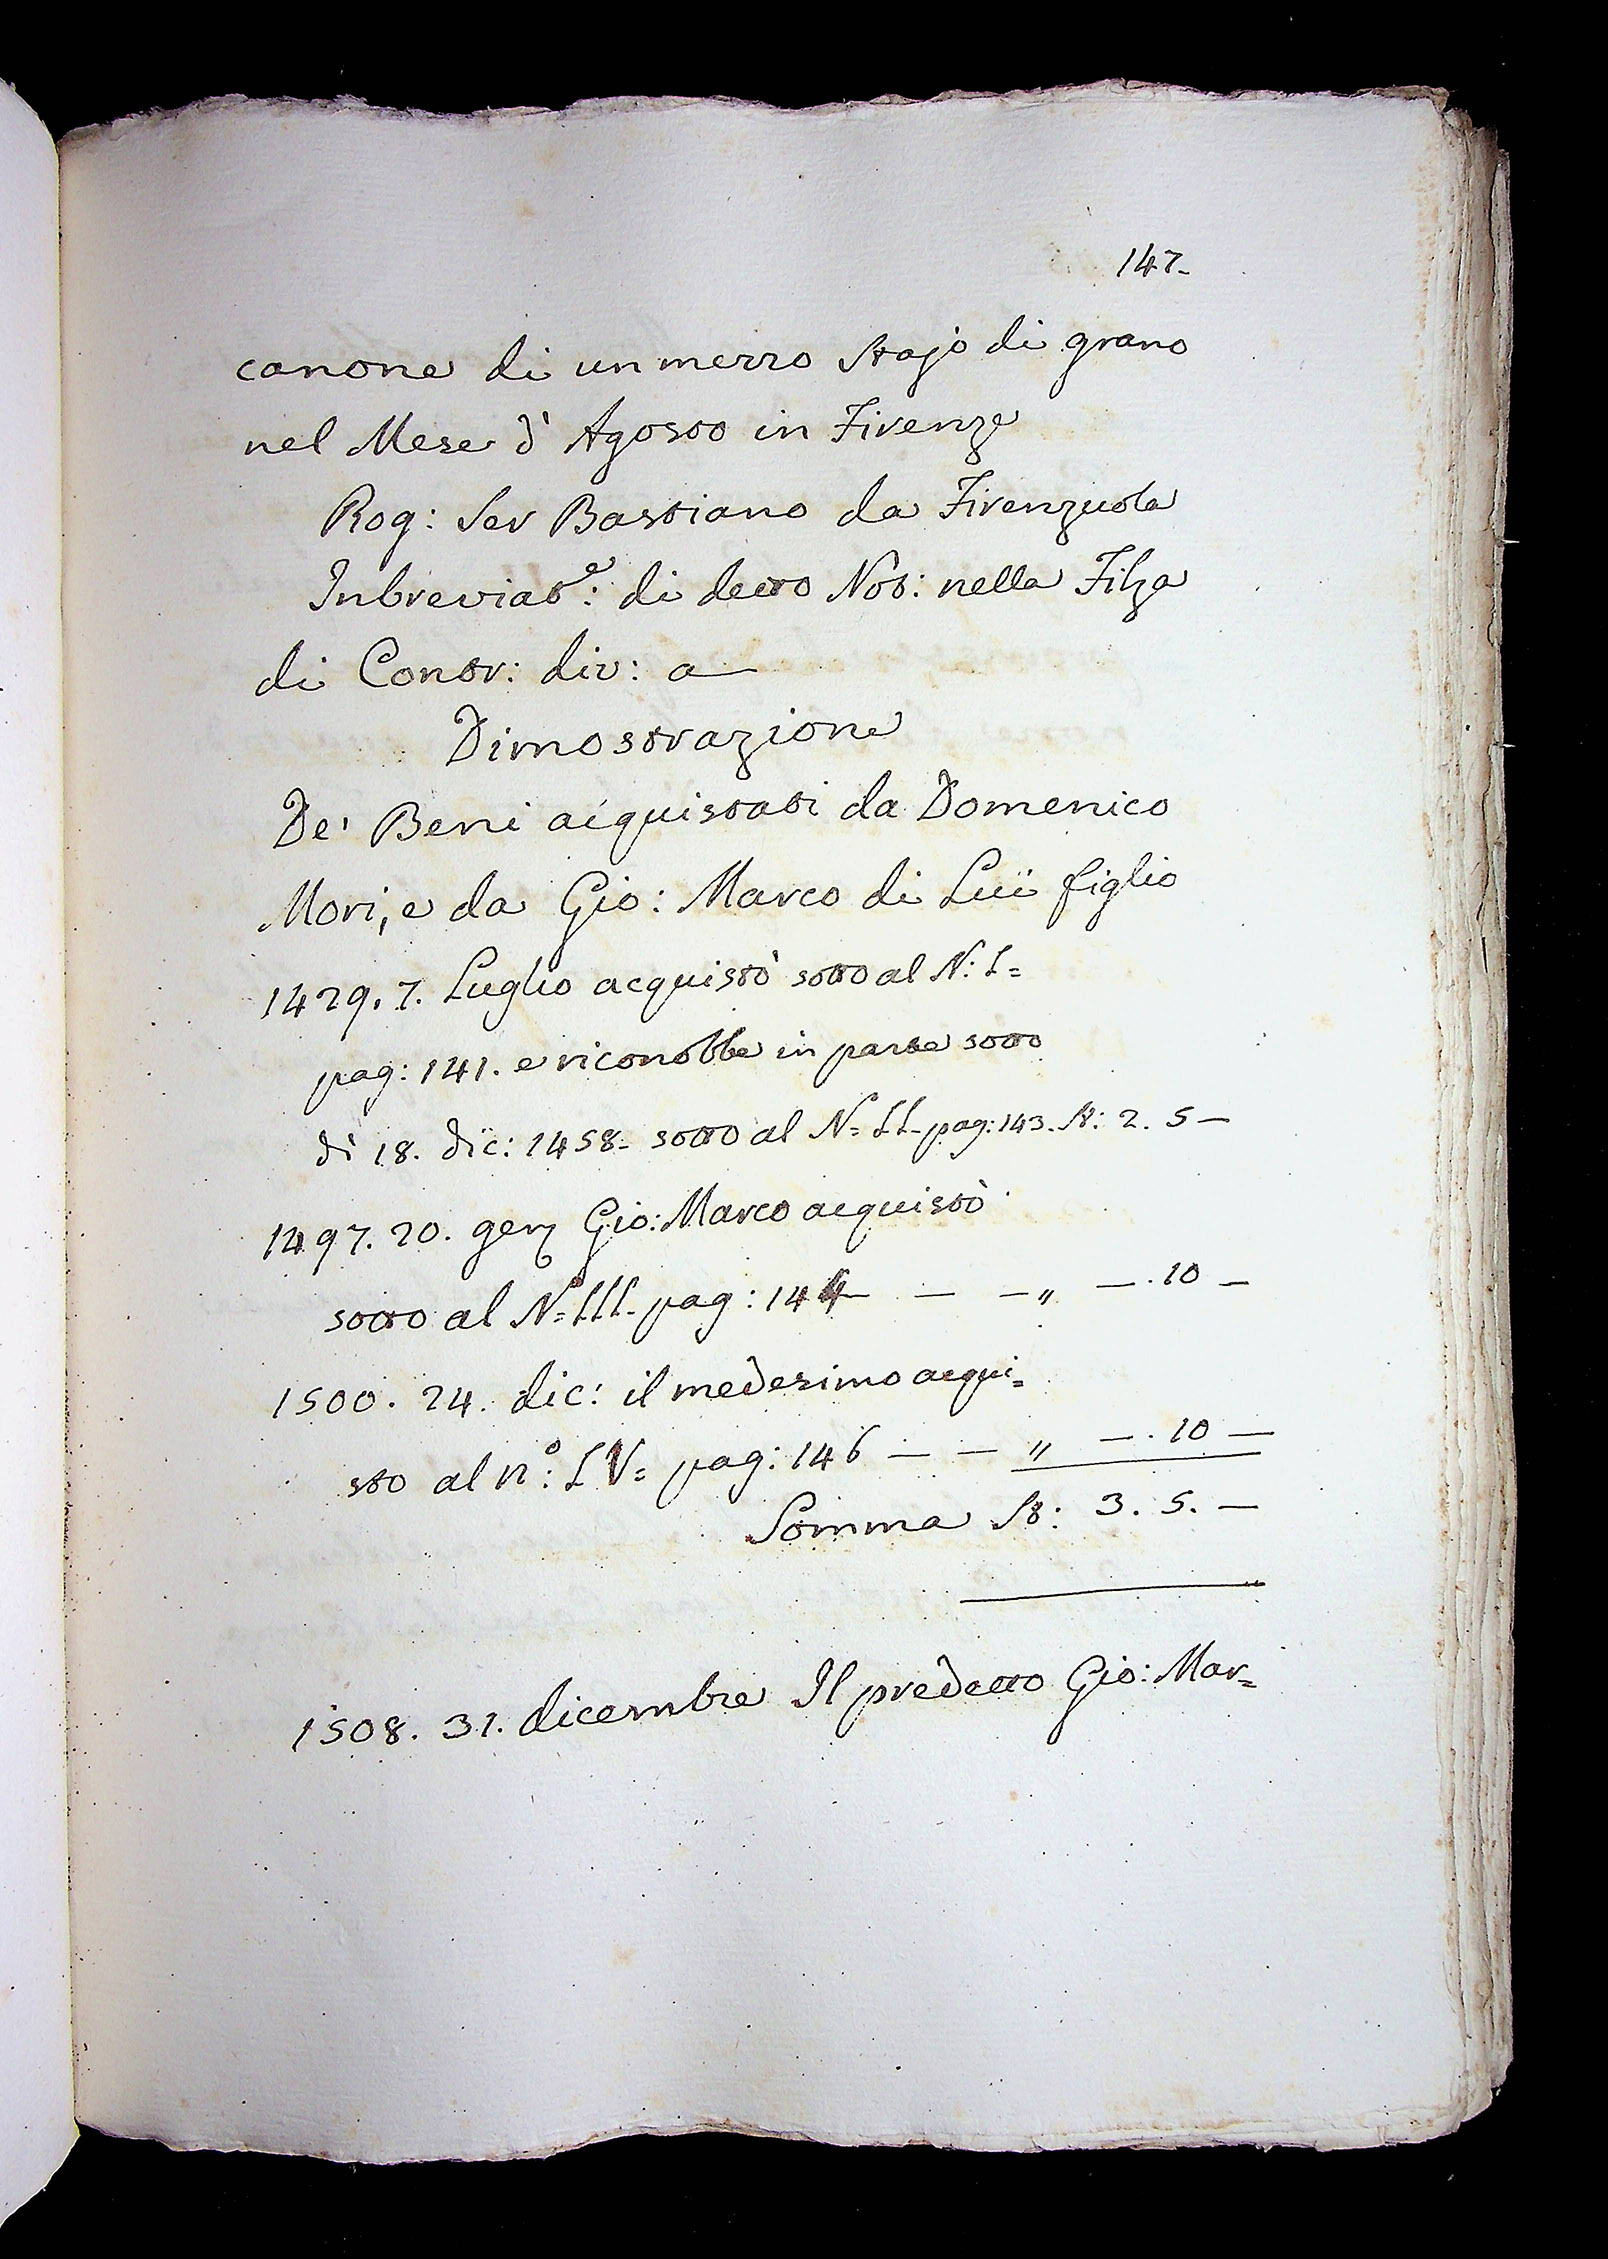 147.
canone di un mezzo Stajo di grano
nel Mese d' Agosto in Firenze
Rog: Ser Bastiano da Firenzuola
Inbreviat.e: di detto Not: nella Filza
di Contr: div: a—
Dimostrazione
De' Beni acquistati da Domenico
Mori, e da Gio: Marco di Lui figlio
1429. 7. Luglio acquistò sotto al N: I=
pag: 141. e riconobbe in parte sotto
dì 18. dic: 1458. sotto al N= II. pag: 143. St: 2. 5 —
1497. 20. gen Gio: Marco acquistò
sotto al N= III. pag: 144 — — „ — . 10 —
1500. 24. dic: il medesimo acqui=
stò al n:° IV= pag: 146 — — „ — . 10 —
Somma St: 3. 5. —
1508. 31. dicembre Il predetto Gio: Mar=